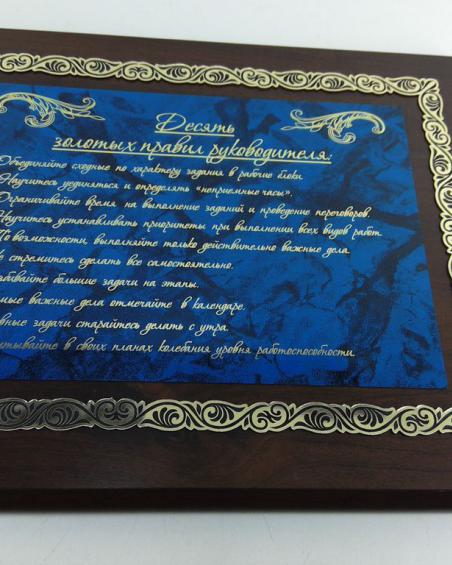 Десять
золотых правил руководителя:
Объединяйте сходные по характеру задания в рабочие блоки.
Научитесь уединяться и определять «неприемные часы».
Ограничивайте время на выполнение заданий и проведение переговоров.
Научитесь устанавливать приоритеты при выполнении всех видов работ.
По возможности, выполняйте только действительно важные дела.
стремитесь сделать все самостоятельно.
збивайте большие задачи на этапы.
мые важные дела отмечайте в календаре.
вные задачи старайтесь делать с утра.
тывайте в своих планах колебания уровня работоспособности.